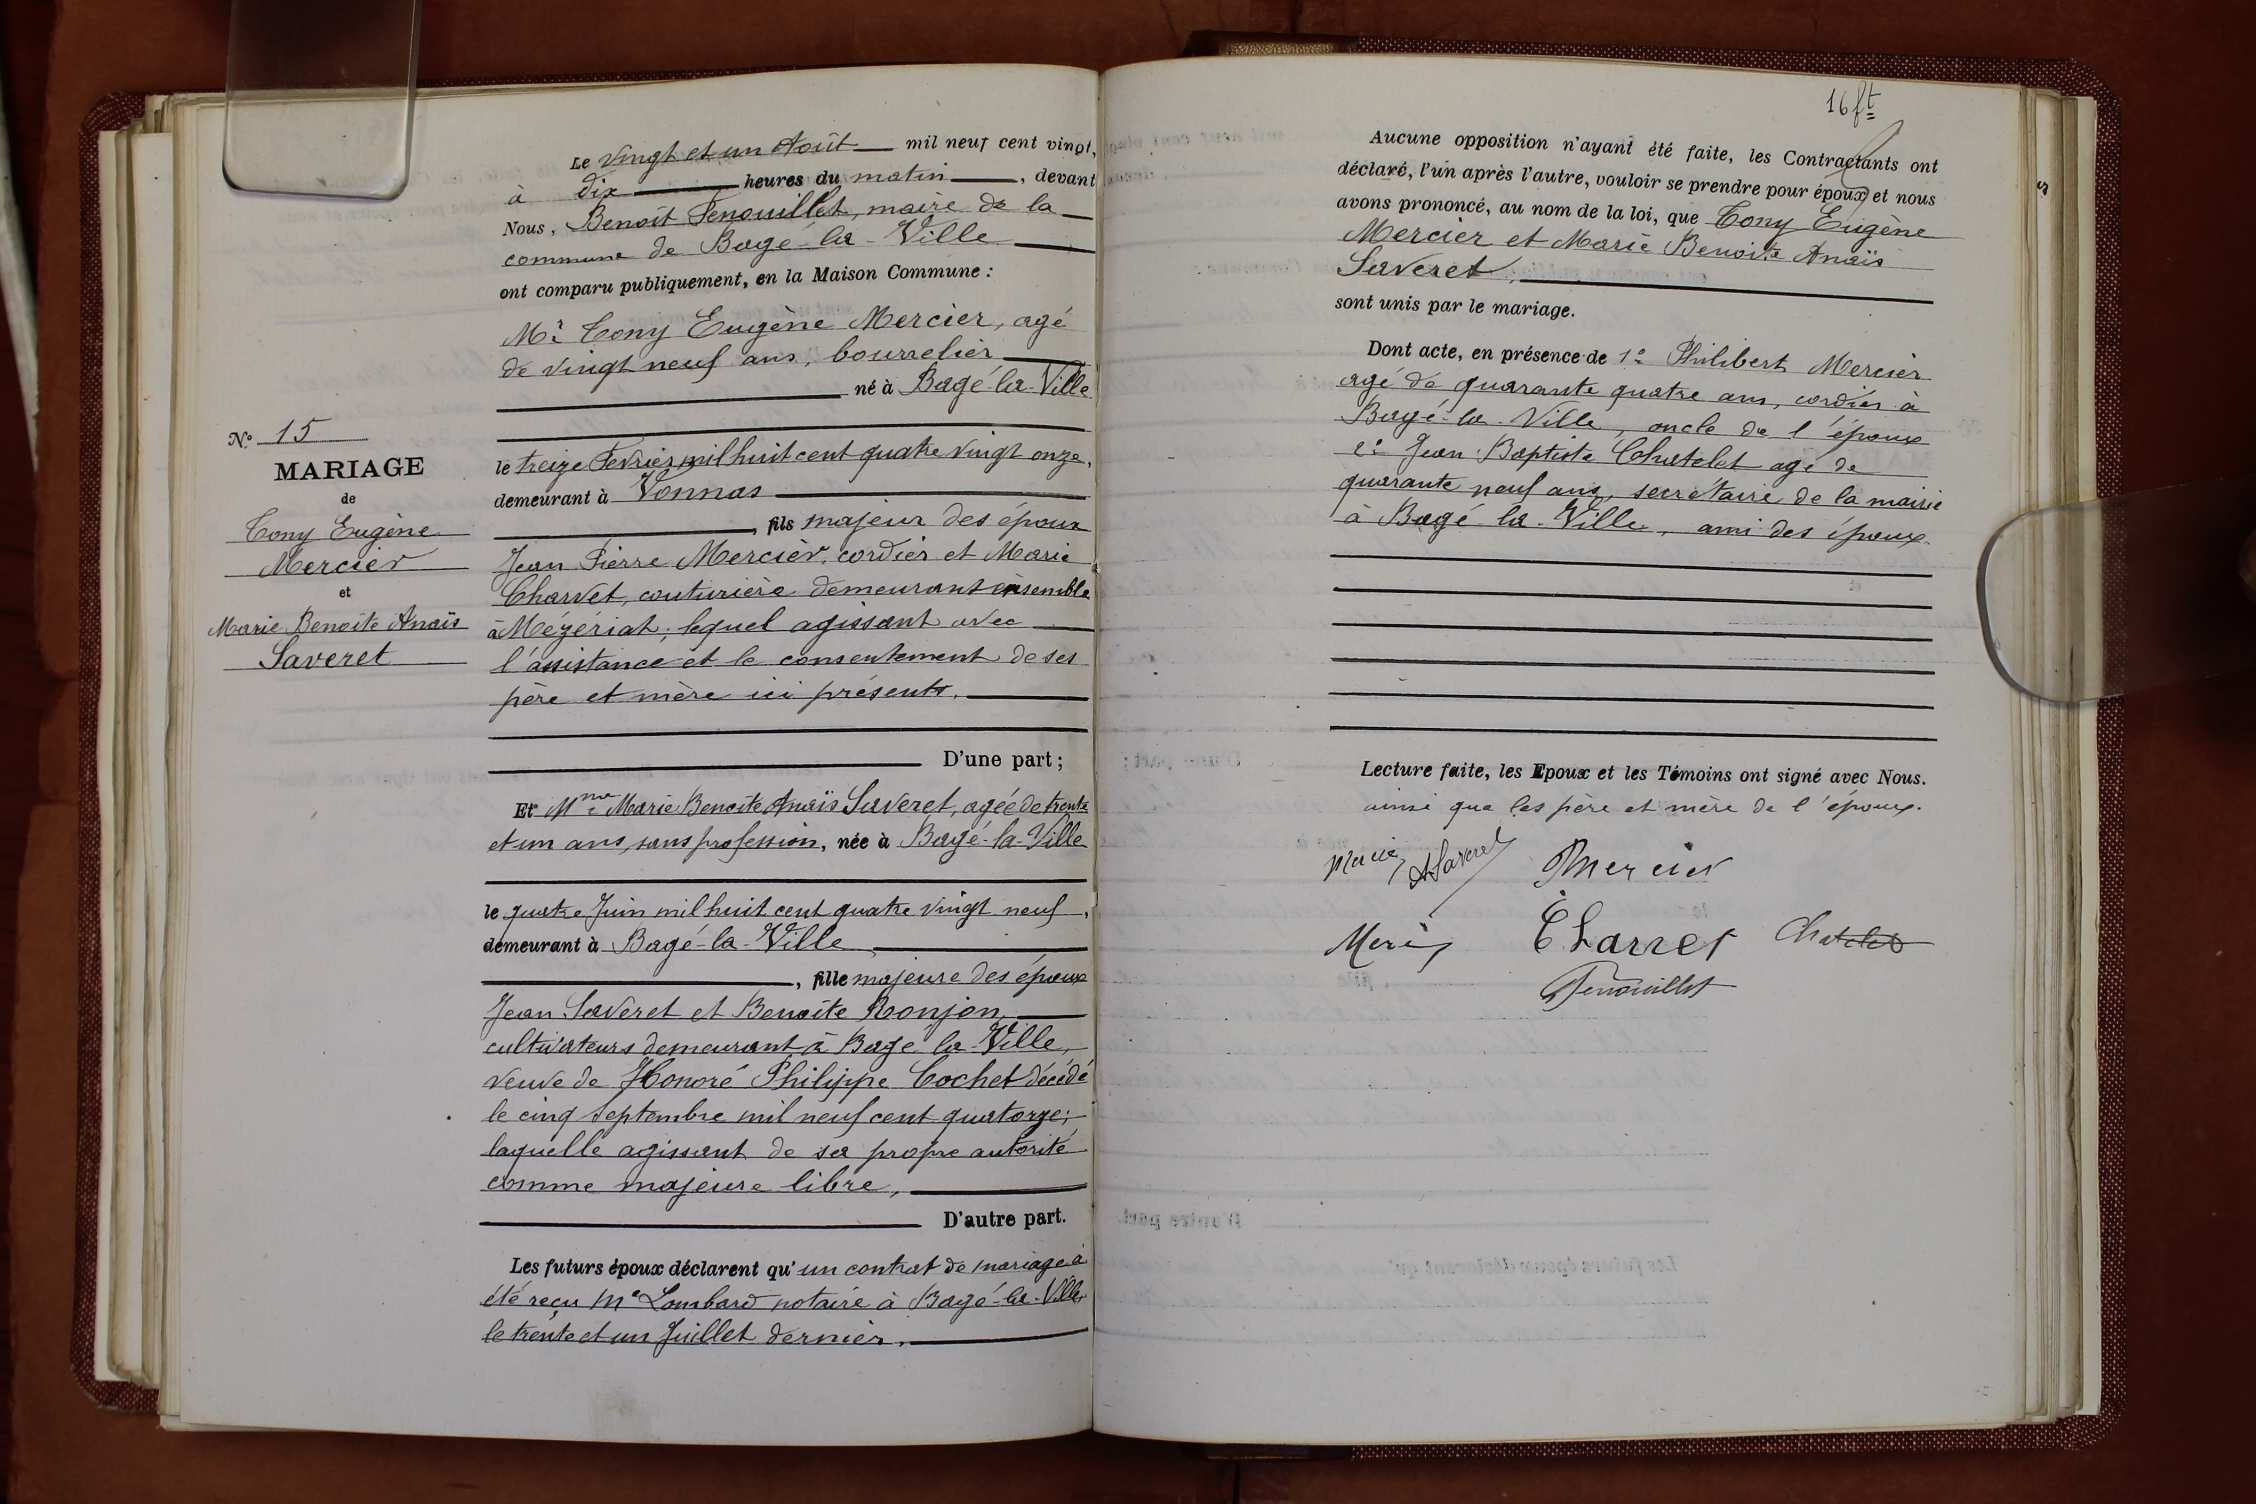 Le vingt et un Août mil neuf cent vingt,
à dix heures du matin, devant
Nous, Benoît Fenouillet, maire de la
commune de Bagé-la-Ville
ont comparu publiquement, en la Maison Commune :
Mr Tony Eugène Mercier, agé
de vingt neuf ans, bourrelier
né à Bagé-la-Ville
le treize Fevrier mil huit cent quatre vingt onze,
demeurant à Vonnas
, fils majeur des époux
Jean Pierre Mercier, cordier et Marie
Charvet, couturière demeurant ensemble
à Mézériat; lequel agissant avec
l'assistance et le consentement de ses
père et mère ici présents.
D'une part ;
Et Mme Marie Benoite Anaïs Saveret, agée de trente
et un ans, sans profession, née à Bagé-la-Ville
le quatre Juin mil huit cent quatre vingt neuf,
demeurant à Bagé-la-Ville
, fille majeure des époux
Jean Saveret et Benoite Ronjon,
cultivateurs demeurant à Bagé la-Ville,
veuve de Honoré Philippe Cochet décédé
le cinq septembre mil neuf cent quatorze;
laquelle agissant de sa propre autorité
comme majeure libre,
D'autre part.
Les futurs époux déclarent qu'un contrat de mariage a
été reçu Me Lombard notaire à Bagé-la-Ville
le trente et un Juillet dernier.
N° 15
MARIAGE
de
Tony Eugène
Mercier
et
Marie Benoite Anaïs
Saveret
16 ft
Aucune opposition n'ayant été faite, les Contractants ont
déclaré, l'un après l'autre, vouloir se prendre pour époux et nous
avons prononcé, au nom de la loi, que Tony Eugène
Mercier et Marie Benoite Anaïs
Saveret,
sont unis par le mariage.
Dont acte, en présence de 1° Philibert Mercier
agé de quarante quatre ans, cordier à
Bagé-la-Ville, oncle de l'époux
2° Jean Baptiste Chatelet agé de
quarante neuf ans, secrétaire de la mairie
à Bagé-la-Ville, ami des époux.
Lecture faite, les Epoux et les Témoins ont signé avec Nous.
ainsi que les père et mère de l'époux.
Mercier ASaveret PMercier
Mercier Charvet Chatelet
Fenouillet